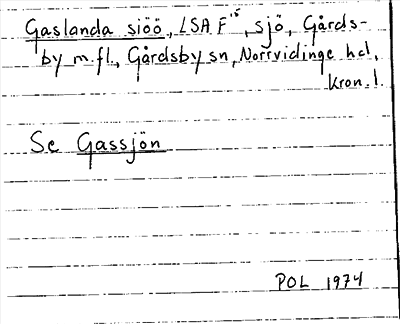 Gaslanda siöö, LSA F¹⁵, sjö, Gårds-
by m.fl., Gårdsby sn, Norrvidinge hd,
Kron. l.
Se Gassjön
POL 1974